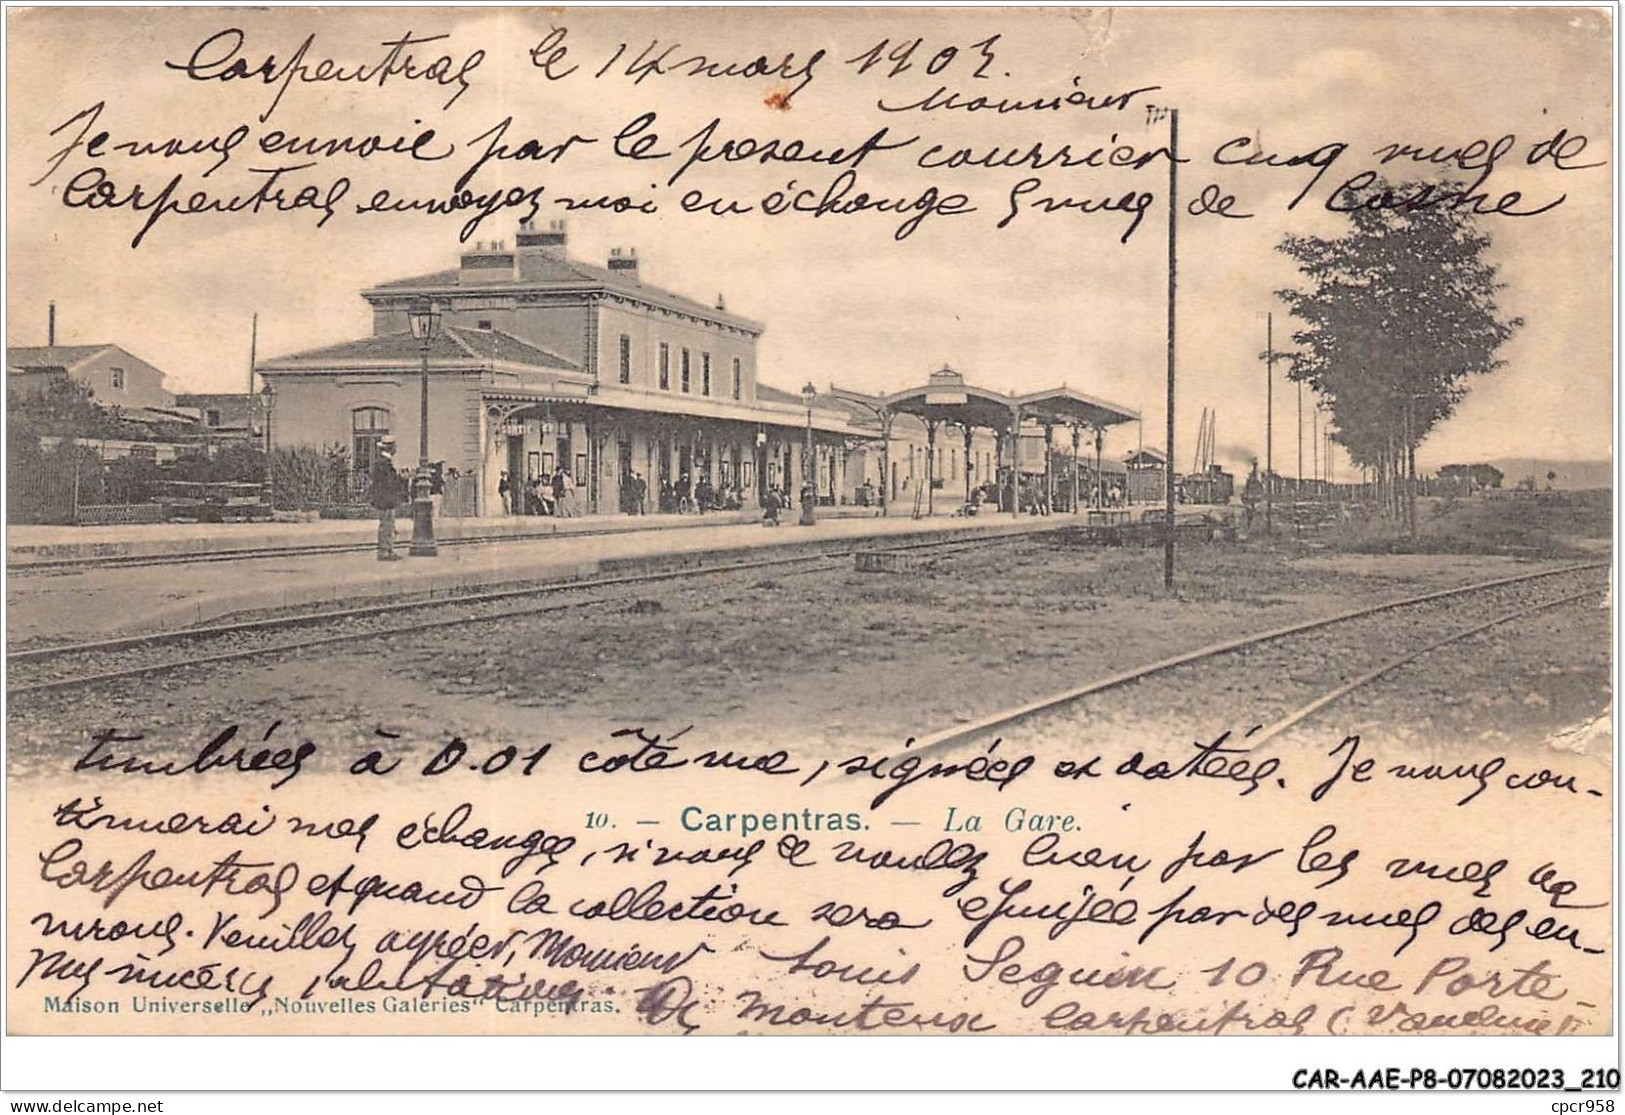 Carpentras le 14 mars 1903.
Monsieur
Je vous envoie par le présent courrier cinq vues de
Carpentras envoyez moi en échange 5 vues de Cosne
SORTIE
timbrées à 0.01 côté vue, signées et datées. Je vous con-
tinuerai mes échanges, si vous le voulez bien par les vues de
10. — Carpentras. — La Gare.
Carpentras et quand la collection sera épuisée par des vues des en-
virons. Veuillez agréer, Monsieur
mes sincères salutations. Louis Seguin 10 Rue Porte-
Maison Universelle „Nouvelles Galeries“ Carpentras.
De Monteux Carpentras (Vaucluse)
CAR-AAE-P8-07082023_210
cpcr958